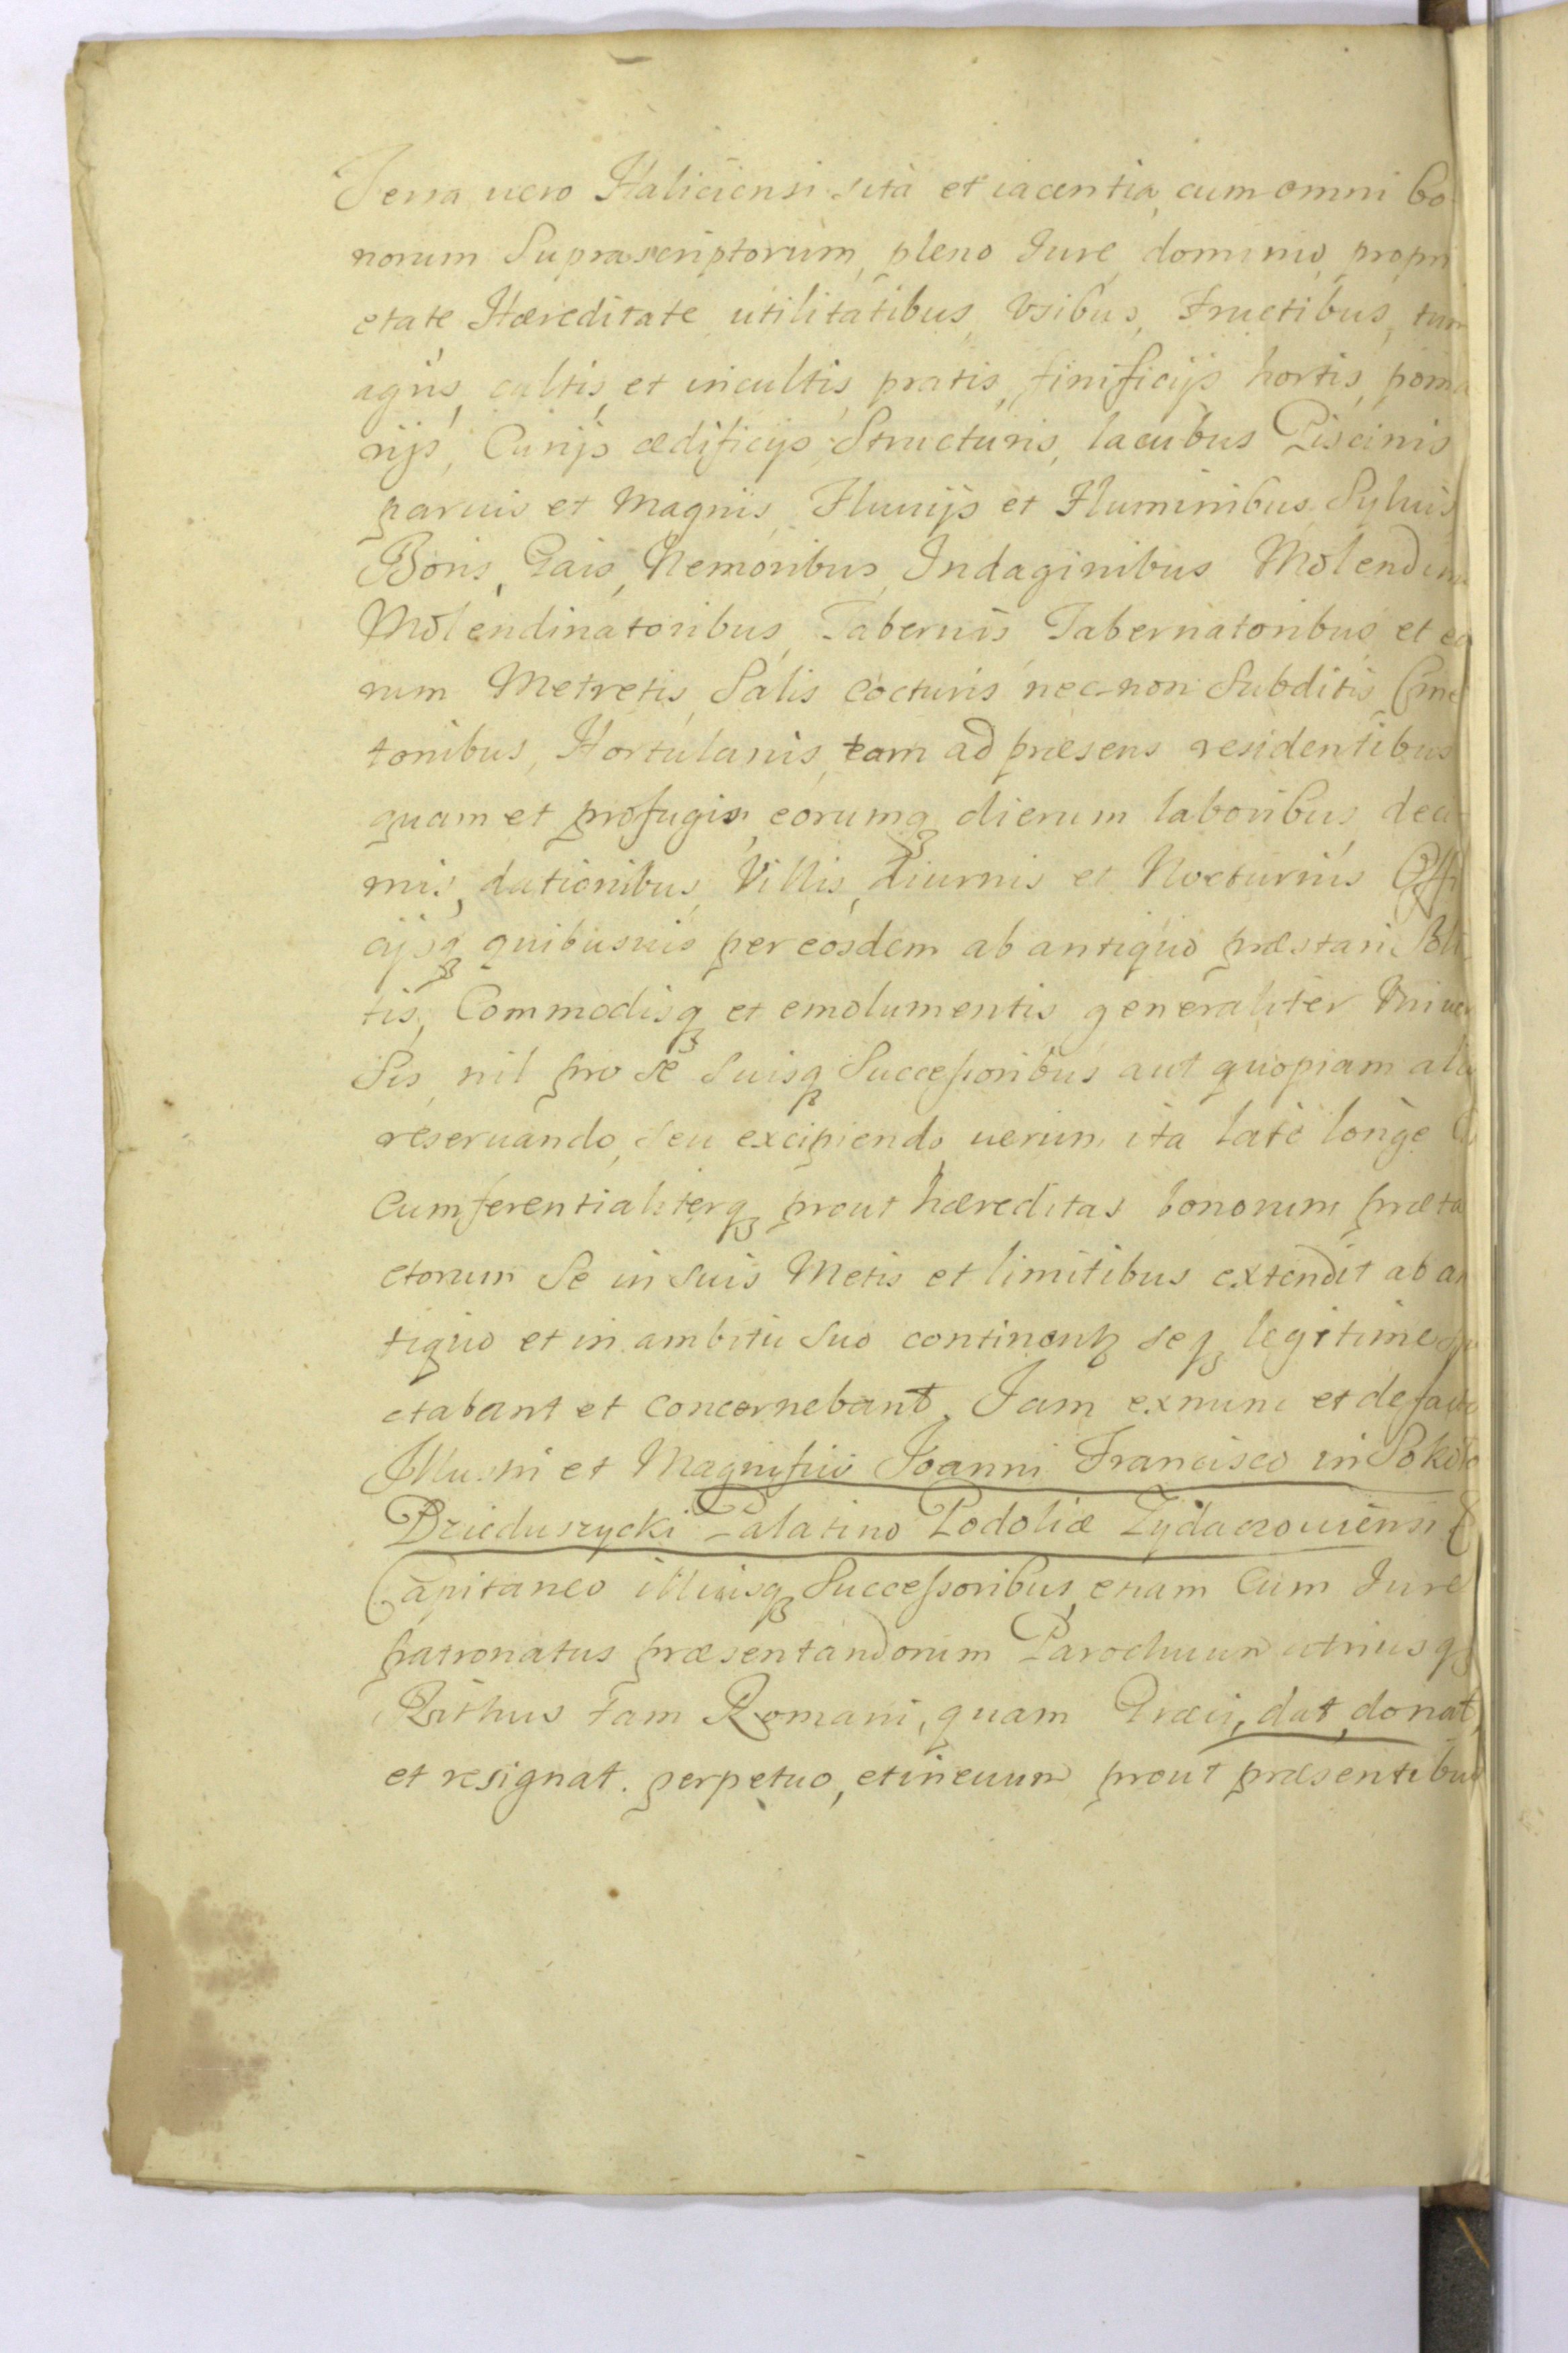 Terra uero Haliciensi sita et iacentia, cum omni bo
norum Suprascriptorum, pleno Jure, dominio, propri
etate Hæreditate, utilitatibus, Vsibus, Fructibus, tum
agris, cultis, et incultis, pratis, finificijs hortis, poma
rijs, Curijs ædificijs, Structuris, lacubus Piscinis
paruis et Magnis, Fluuijs et Fluminibus, Syluis
Boris, Gais, Nemoribus, Indaginibus Molendini
Molendinatoribus, Tabernis Tabernatoribus, et eo
rum Metretis, Salis cocturis nec-non Subditis, Cme
tonibus, Hortulanis, tam ad præsens residentibus
quam et profugis, eorumq dierum laboribus, deci
mis, dationibus, Villis, diurnis et Nocturnis Offi
cijsq quibusuis per eosdem ab antiquo præstari Soli
tis, Commodisq et emolumentis generaliter Vniuer
sis, nil pro se Suisq Successoribus aut quopiam alio
reseruando, seu excipiendo, uerum ita latè longè
cumferentialiterq prout hæreditas bonorum præta
ctorum Se in suis Metis et limitibus extendit ab an
tiquo et in ambitu Suo continentq seq legitime spe
ctabant et concernebant. Jam ex nunc et de facto
Illustri et Magnifico Joanni Francisco in Sokole
Dzieduszycki Palatino Podoliæ Zydaczouiensi
Capitaneo illiusq Successoribus, etiam Cum Jure
patronatus præsentandorum Parochuum utriusq
Rithus tam Romani, quam Græci, dat, donat,
et resignat. perpetuo, et in euum prout præsentibus